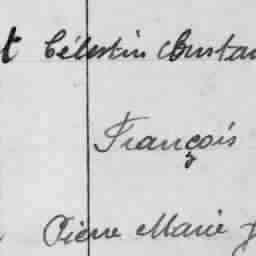 t Célestin Gustav
François
Pierre Marie J